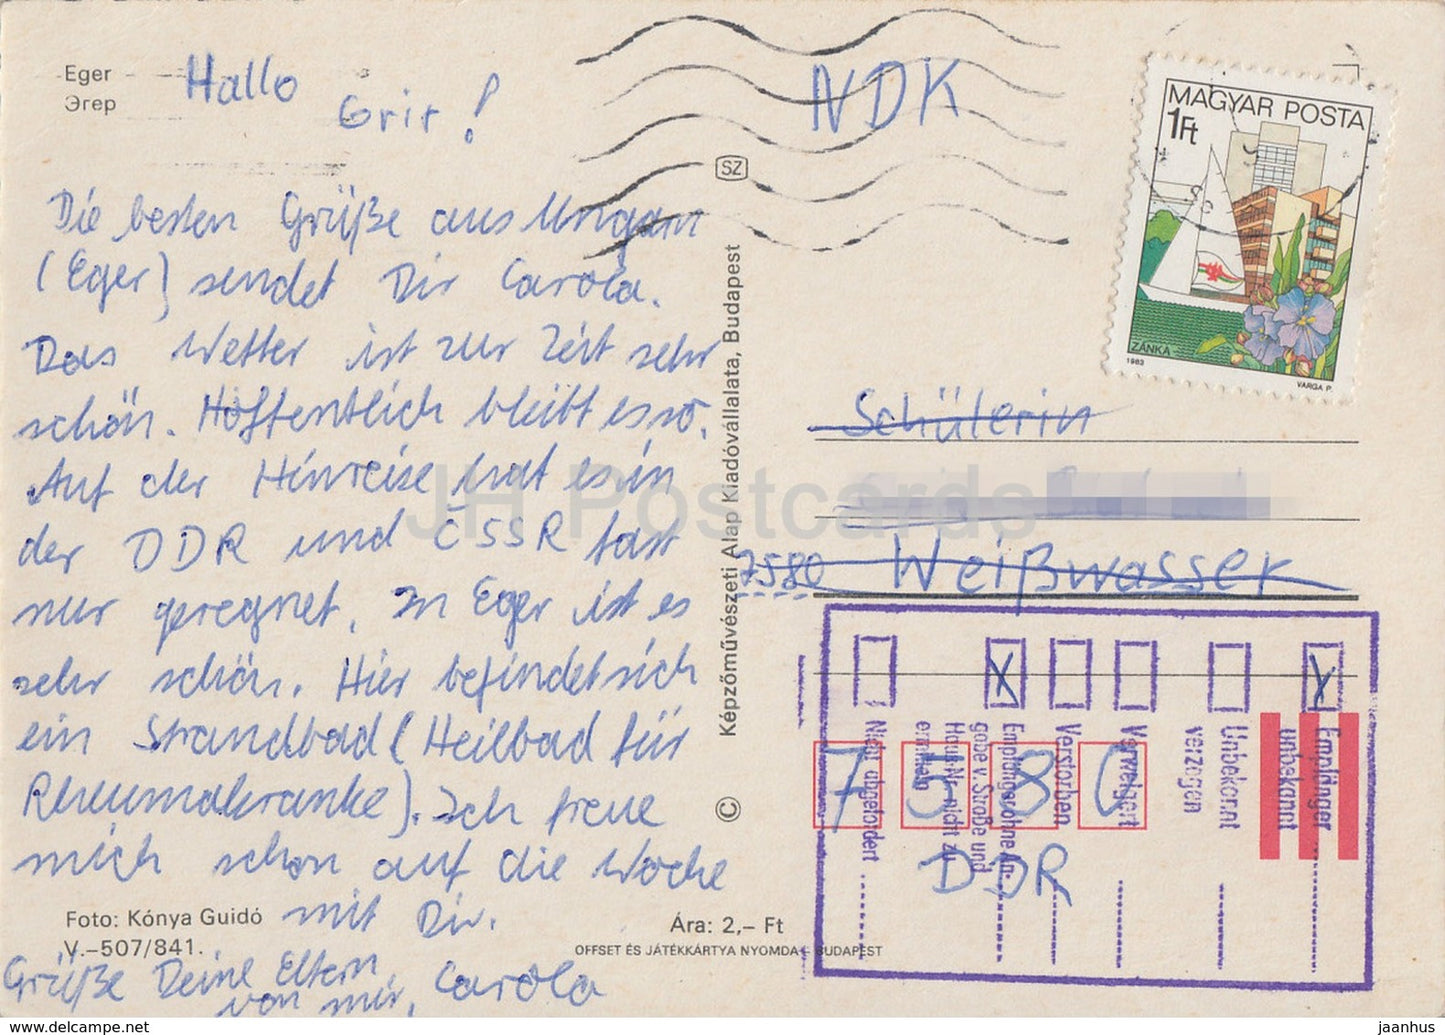 Eger
Эгер
Hallo
Grit!
Die besten Grüße aus Ungarn
(Eger) sendet Dir Carola.
Das Wetter ist zur Zeit sehr
schön. Hoffentlich bleibt es so.
Auf der Hinreise hat es in
der DDR und ČSSR fast
nur geregnet. In Eger ist es
sehr schön. Hier befindet sich
ein Strandbad (Heilbad für
Rheumakranke). Ich freue
mich schon auf die Woche
mit Dir.
Grüße Deine Eltern
von mir, Carola
Foto: Kónya Guidó
V.–507/841.
Ára: 2,– Ft
OFFSET ÉS JÁTÉKKÁRTYA NYOMDA – BUDAPEST
© Képzőművészeti Alap Kiadóvállalata, Budapest
SZ
NDK
MAGYAR POSTA
1Ft
ZÁNKA
1983
VARGA P.
Schülerin
7580 Weißwasser
7580
DDR
Empfänger
unbekannt
Unbekannt
verzogen
Verweigert
Verstorben
Empfänger ohne An-
gabe v. Straße und
Haus-Nr. nicht zu
ermitteln
Nicht abgefordert
JH Postcards
jaanhus.com